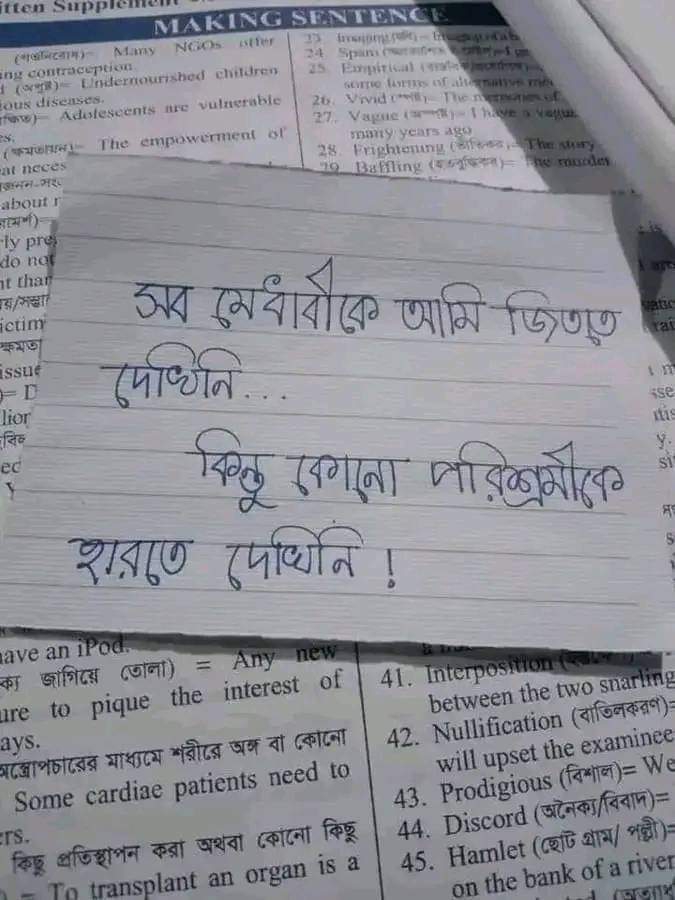 itten Supplement
MAKING SENTENCE
Many NGOs offer
ing contraception.
(অপুষ্ট)= Undernourished children
ious diseases.
Adolescents are vulnerable
es.
(ক্ষমতায়ন)= The empowerment of
at neces
about r
rly pre
do not
nt than
ictim
ক্ষমতা
issue
)= D
lior
ec
Y
23.
24. Spam
25. Empirical
some forms of alternative me
26. Vivid (স্পষ্ট)= The memories of
27. Vague (অস্পষ্ট)= I have a vague
many years ago
28. Frightening (ভীতিকর)= The story
29. Baffling The murder
সব মেধাবীকে আমি জিততে
দেখিনি...
কিন্তু কোনো পরিশ্রমীকে
হারতে দেখিনি!
have an iPod.
ক্য জাগিয়ে তোলা) = Any new
ure to pique the interest of
ays.
অস্ত্রোপচারের মাধ্যমে শরীরে অঙ্গ বা কোনো
Some cardiae patients need to
ers.
কিছু প্রতিস্থাপন করা অথবা কোনো কিছু
= To transplant an organ is a
41. Interposition
between the two snarling
42. Nullification (বাতিলকরণ)=
will upset the examinee
43. Prodigious (বিশাল)= We
44. Discord (অনৈক্য/বিবাদ)=
45. Hamlet (ছোট গ্রাম/ পল্লী)=
on the bank of a river